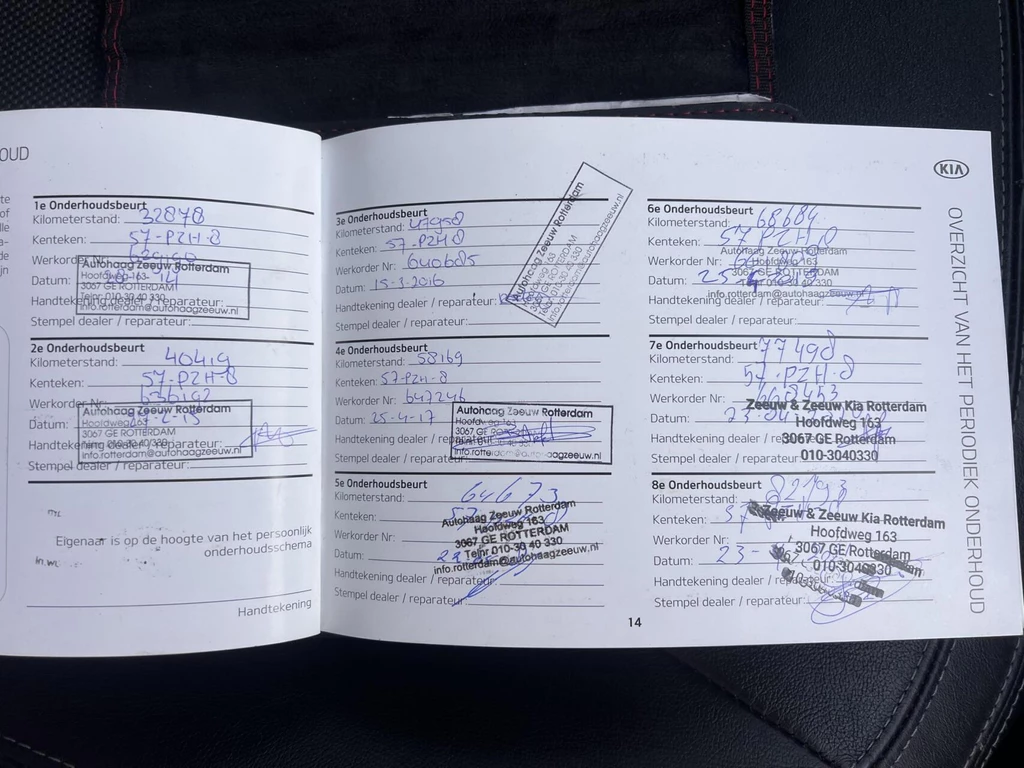 OUD
te
of
lle
a-
de
ijn
1e Onderhoudsbeurt
Kilometerstand: 32878
Kenteken: 57-PZH-8
Werkorder Nr:
Autohaag Zeeuw Rotterdam
Datum:
Hoofdweg 163
3067 GE ROTTERDAM
Telnr 010-30 40 330
Handtekening dealer / reparateur:
info.rotterdam@autohaagzeeuw.nl
Stempel dealer / reparateur:
2e Onderhoudsbeurt
Kilometerstand: 40419
Kenteken: 57-PZH-8
Werkorder Nr: 636192
Autohaag Zeeuw Rotterdam
Datum:
Hoofdweg 163
3067 GE ROTTERDAM
Telnr 010-30 40 330
Handtekening dealer / reparateur:
info.rotterdam@autohaagzeeuw.nl
Stempel dealer / reparateur:
Eigenaar is op de hoogte van het persoonlijk
onderhoudsschema
Handtekening
3e Onderhoudsbeurt
Kilometerstand: 47958
Kenteken: 57-PZH-8
Werkorder Nr: 640685
Datum: 15-3-2016
Handtekening dealer / reparateur:
Stempel dealer / reparateur:
Autohaag Zeeuw Rotterdam
Hoofdweg 163
3067 GE ROTTERDAM
Telnr 010-30 40 330
info.rotterdam@autohaagzeeuw.nl
4e Onderhoudsbeurt
Kilometerstand: 58169
Kenteken: 57-PZH-8
Werkorder Nr: 647246
Datum: 25-4-17
Autohaag Zeeuw Rotterdam
Hoofdweg 163
3067 GE ROTTERDAM
Handtekening dealer / reparateur:
info.rotterdam@autohaagzeeuw.nl
Stempel dealer / reparateur:
5e Onderhoudsbeurt
Kilometerstand: 64673
Kenteken:
Autohaag Zeeuw Rotterdam
Werkorder Nr:
Hoofdweg 163
3067 GE ROTTERDAM
Datum:
Telnr 010-30 40 330
info.rotterdam@autohaagzeeuw.nl
Handtekening dealer / reparateur:
Stempel dealer / reparateur:
14
6e Onderhoudsbeurt
Kilometerstand: 68684
Kenteken: 57 PZH 8
Autohaag Zeeuw Rotterdam
Werkorder Nr:
Hoofdweg 163
3067 GE ROTTERDAM
Datum:
Telnr 010-30 40 330
info.rotterdam@autohaagzeeuw.nl
Handtekening dealer / reparateur:
Stempel dealer / reparateur:
7e Onderhoudsbeurt
Kilometerstand: 77498
Kenteken: 57-PZH-8
Werkorder Nr: 668453
Zeeuw & Zeeuw Kia Rotterdam
Datum:
Hoofdweg 163
Handtekening dealer / reparateur:
3067 GE Rotterdam
Stempel dealer / reparateur:
010-3040330
8e Onderhoudsbeurt
Kilometerstand: 82193
Kenteken:
Zeeuw & Zeeuw Kia Rotterdam
Werkorder Nr:
Hoofdweg 163
3067 GE Rotterdam
Datum:
010-3040330
Handtekening dealer / reparateur:
Stempel dealer / reparateur:
KIA
OVERZICHT VAN HET PERIODIEK ONDERHOUD